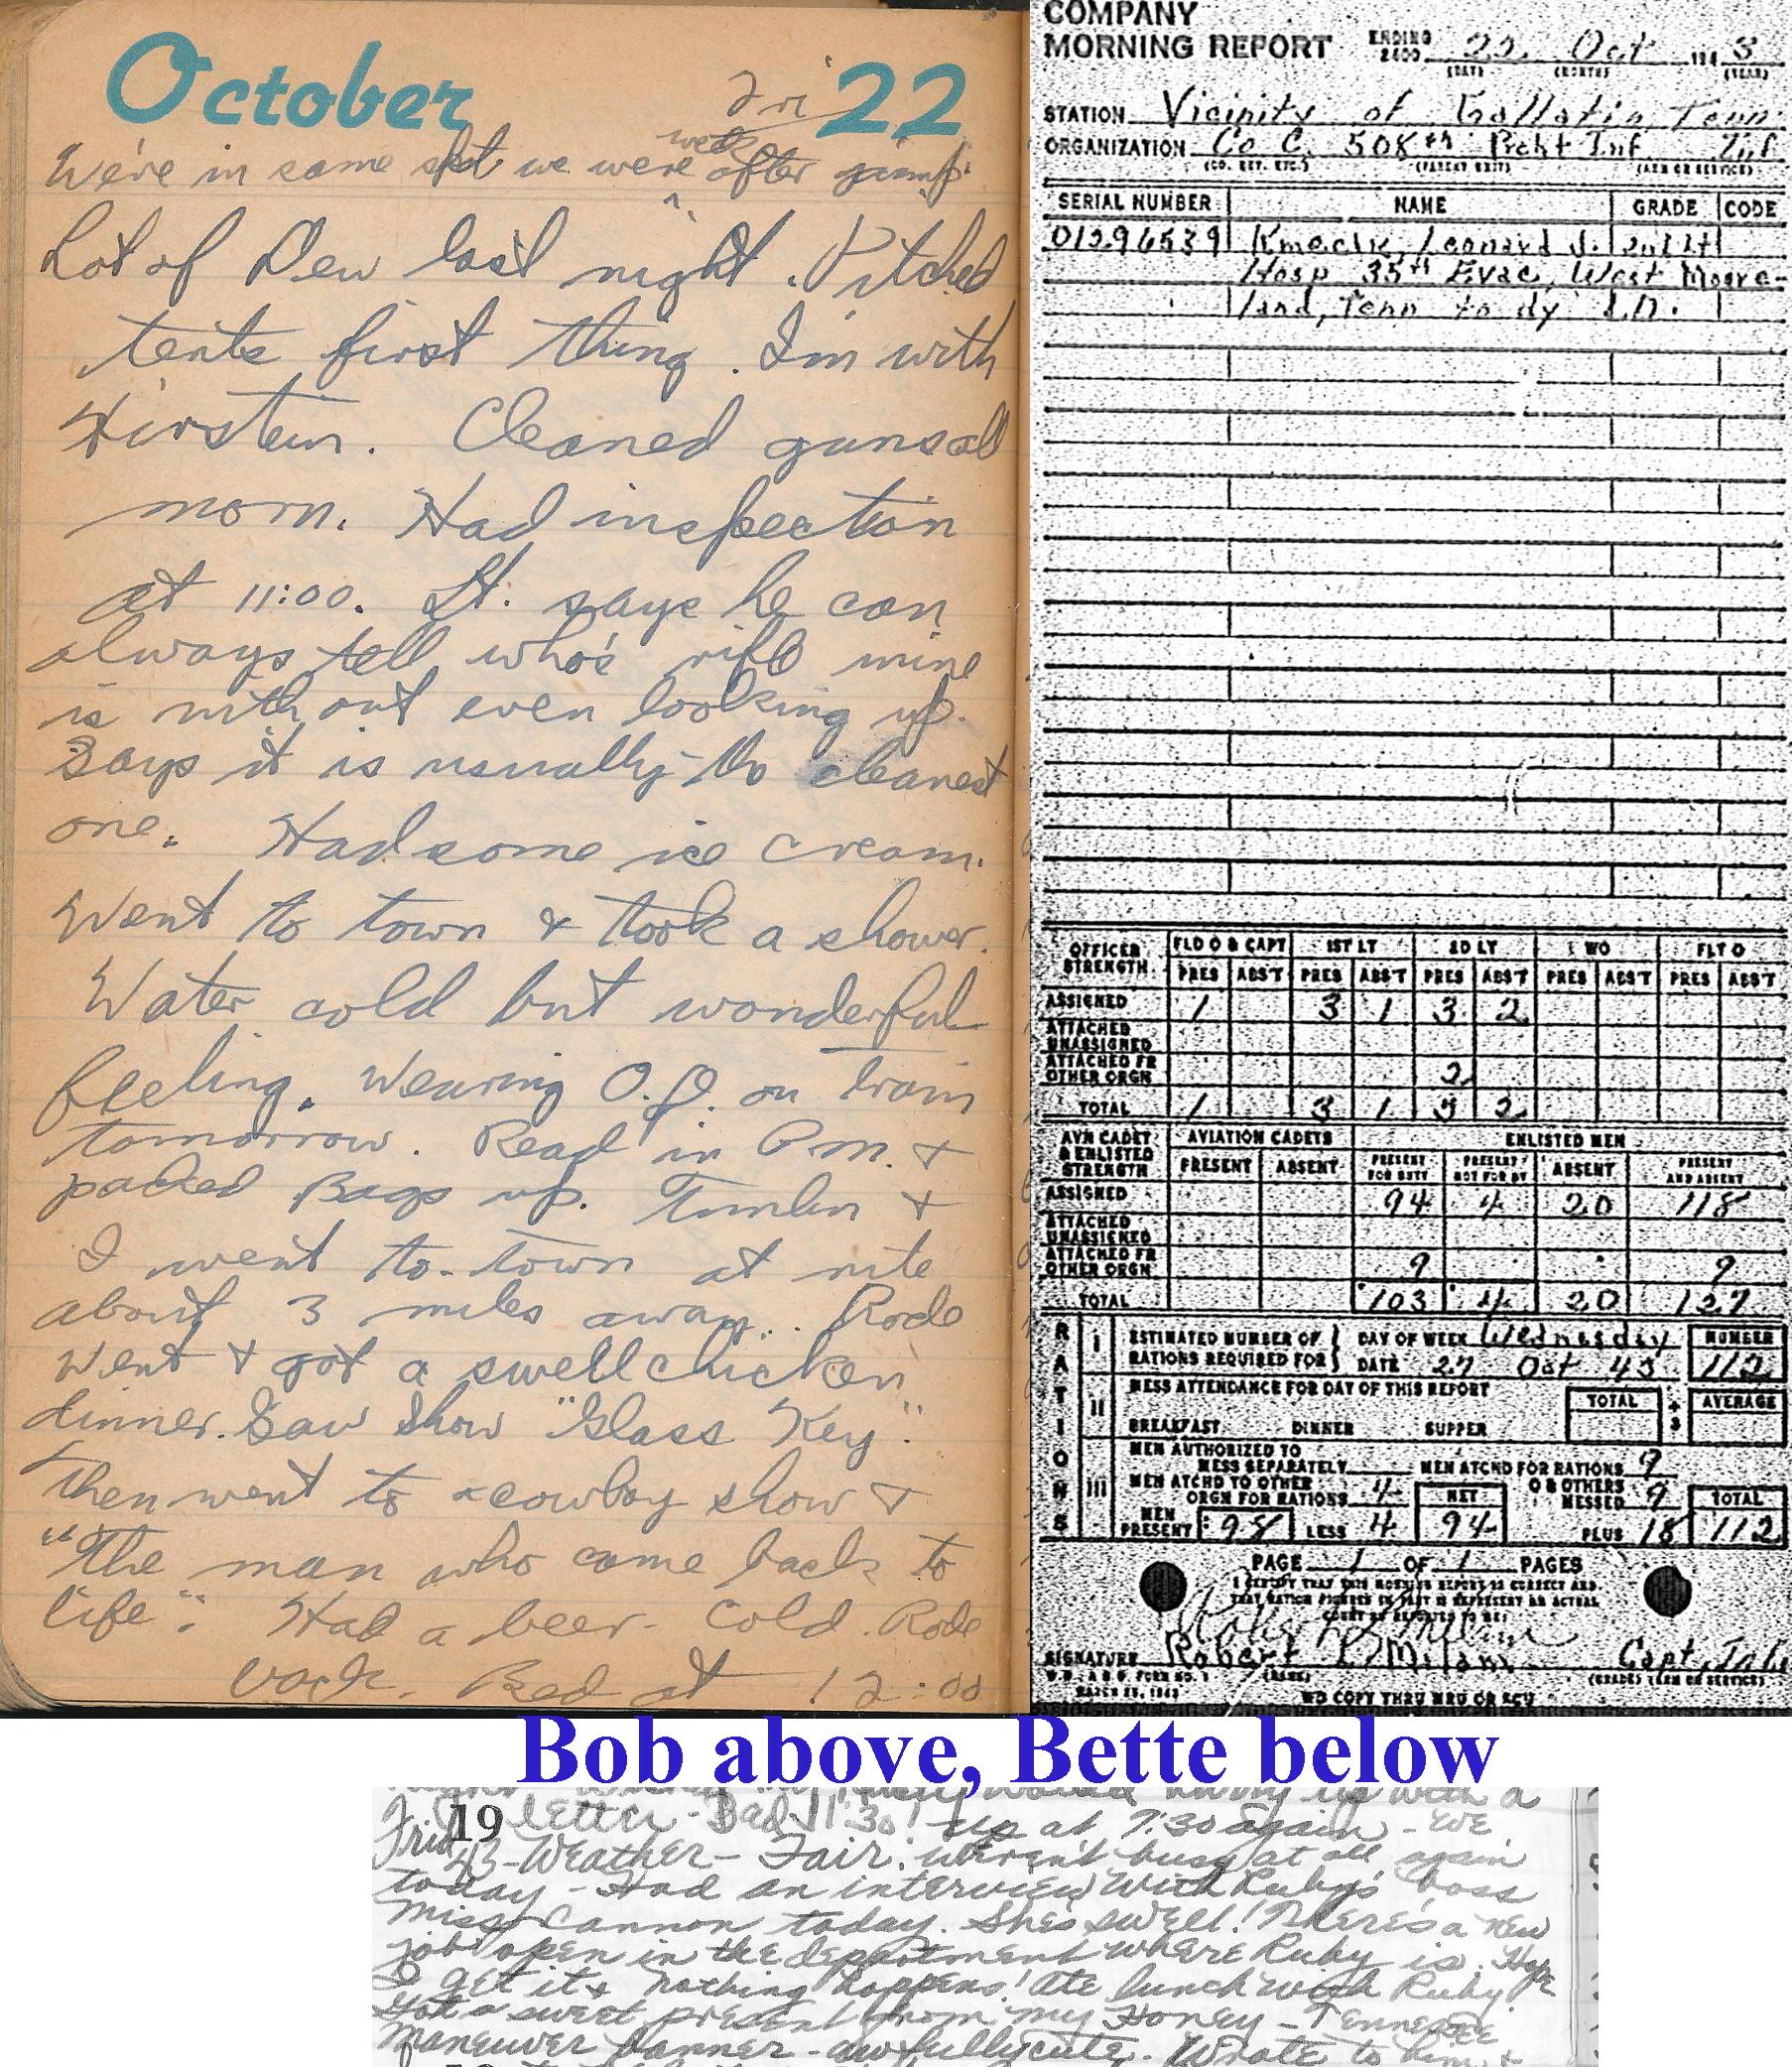 October Fri 22
week
We're in same spot we were after jump.
Lot of Dew last night. Pitched
tents first thing. I'm with
Hirstein. Cleaned guns all
morn. Had inspection
at 11:00. Lt. says he can
always tell who's rifle mine
is without even looking up.
Says it is usually the cleanest
one. Had some ice cream.
Went to town & took a shower.
Water cold but wonderful
feeling. Wearing O.D. on train
tomorrow. Read in P.m. &
packed Bags up. Tumlin &
I went to town at nite
about 3 miles away. Rode
went & got a swell chicken
dinner. Saw show "Glass Key".
Then went to a cowboy show &
"The man who came back to
life". Had a beer. Cold. Rode
back. Bed at 12:00
COMPANY
MORNING REPORT ENDING 2400 22 Oct 194 3
(DATE) (MONTH) (YEAR)
STATION Vicinity of Gallatin Tenn
ORGANIZATION Co C. 508th Prcht Inf Inf
(CO. BTY. ETC.) (PARENT UNIT) (ARM OR SERVICE)
SERIAL NUMBER NAME GRADE CODE
01296539 Leonard J. 2nd Lt
Hosp 35th Evac, West More-
land, Tenn to dy LD.
OFFICER STRENGTH FLD O & CAPT 1ST LT 2D LT WO FLT O
PRES ABS'T PRES ABS'T PRES ABS'T PRES ABS'T PRES ABS'T
ASSIGNED 1 3 1 3 2
ATTACHED UNASSIGNED
ATTACHED FR OTHER ORGN 2
TOTAL 1 3 1 5 2
AVN CADET & ENLISTED STRENGTH AVIATION CADETS ENLISTED MEN
PRESENT ABSENT PRESENT FOR DUTY PRESENT NOT FOR DY ABSENT PRESENT AND ABSENT
ASSIGNED 94 4 20 118
ATTACHED UNASSIGNED
ATTACHED FR OTHER ORGN 9 9
TOTAL 103 4 20 127
RATIONS
I ESTIMATED NUMBER OF RATIONS REQUIRED FOR DAY OF WEEK Wednesday NUMBER
DATE 27 Oct 43 112
II MESS ATTENDANCE FOR DAY OF THIS REPORT TOTAL ÷ 3 AVERAGE
BREAKFAST DINNER SUPPER
III MEN AUTHORIZED TO MESS SEPARATELY MEN ATCHD FOR RATIONS 9
MEN ATCHD TO OTHER ORGN FOR RATIONS 4 NET O & OTHERS MESSED 9 TOTAL
MEN PRESENT 98 LESS 4 94 PLUS 18 112
PAGE 1 OF 1 PAGES
I CERTIFY THAT THIS MORNING REPORT IS CORRECT AND
SIGNATURE Robert D Milam Capt, Inf
(NAME) (GRADE) (ARM OR SERVICE)
W.D., A.G.O. FORM NO. 1
MARCH 25, 1943
WD COPY THRU MRU OR SCU
Bob above, Bette below
hurry up with a
19 letter - Bed 11:30! up at 7:30 again - We
Frid 43 - Weather - Fair. weren't busy at all again
today - Had an interview with Ruby's boss
Miss Cannon today. She's swell! There's a new
job open in the department where Ruby is. Hope
I get it & nothing happens! Ate lunch with Ruby.
Got a sweet present from my Honey - Tennessee
Maneuver Banner - awfully cute. Wrote to him &